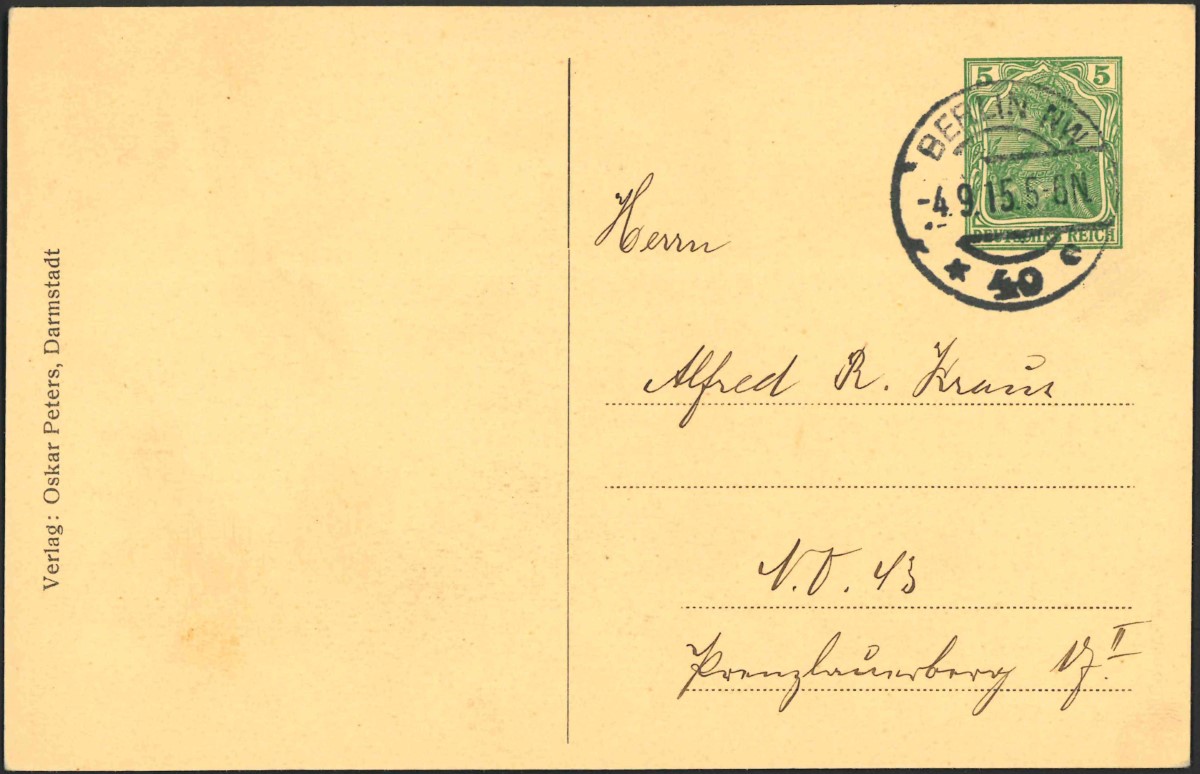 Verlag: Oskar Peters, Darmstadt
5 5
DEUTSCHES REICH
BERLIN NW
-4.9.15.5-6N.
* 40 c
Herrn
Alfred R. Kraus
N.O. 43
Prenzlauerberg 17 II